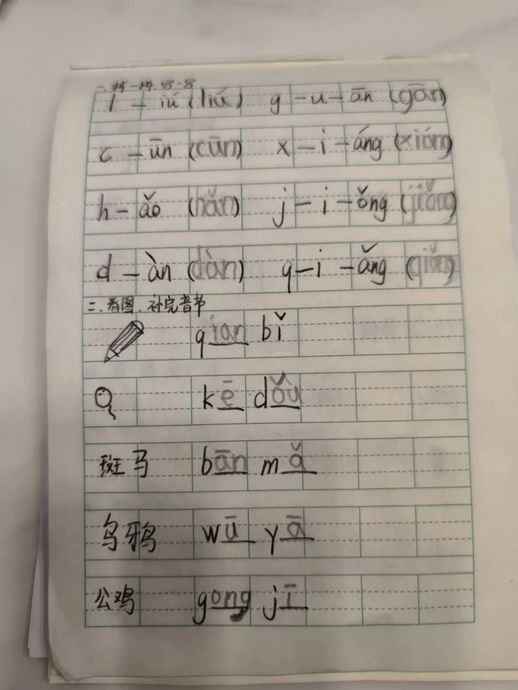 一、拼一拼,写一写
l — iú (liú) g — u — ān (gān)
c — ūn (cūn) x — i — áng (xióng)
h — ǎo (hǎn) j — i — ǒng (jiǒng)
d — àn (dàn) q — i — ǎng (qiǒng)
二、看图,补完音节
qian bǐ
kē dǒu
斑马 bān mǎ
乌鸦 wū yā
公鸡 gong jī